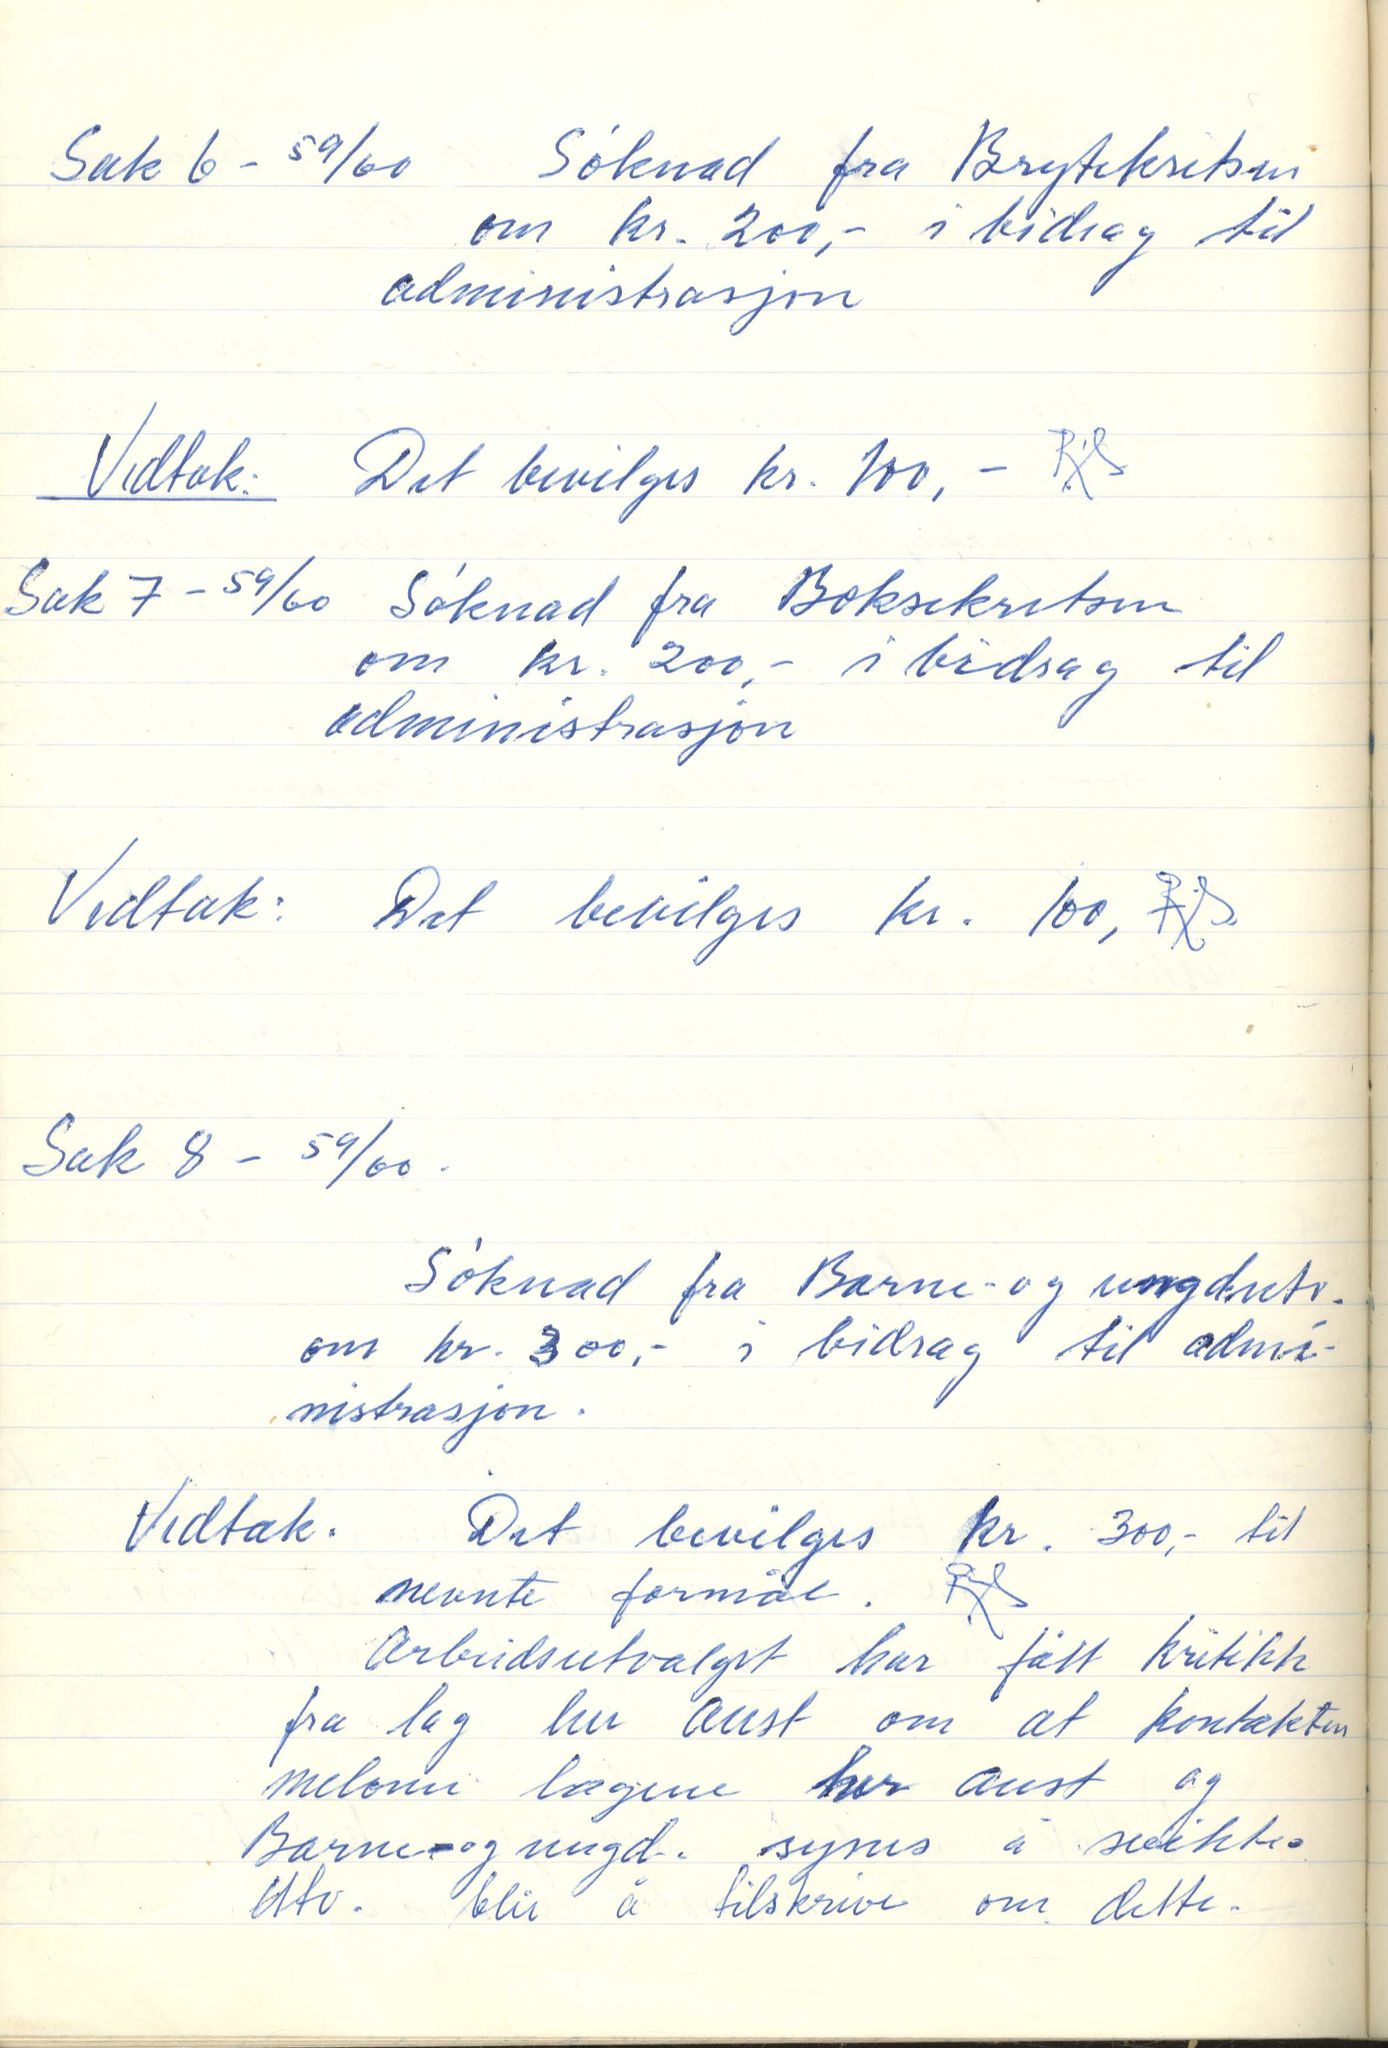 Sak 6 - 59/60 Söknad fra Brytekretsen
om kr. 200,- i bidrag til
administrasjon
Vedtak: Det bevilges kr. 100,-
Sak 7 - 59/60 Söknad fra Boksekretsen
om kr. 200,- i bidrag til
administrasjon
Vedtak: Det bevilges kr. 100,
Sak 8 - 59/60.
Söknad fra Barne- og ungd.utv.
om kr. 300,- i bidrag til admi-
nistrasjon.
Vedtak. Det bevilges kr. 300,- til
nevnte formål.
Arbeidsutvalget har fått kritikk
fra lag her aust om at kontakten
melom lagene her aust og
Barne- og ungd. synes å svikte.
Utv. blir å tilskrive om dette.